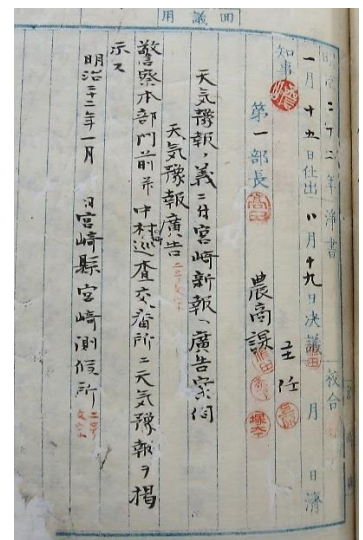 回議用
明治二十二年淨書 校合
一月十九日仕出 月十九日決議 月 日濟
知事 主任
第一部長 農商課
天気豫報ノ義ニ付宮崎新報ヘ廣告案伺
天気豫報廣告
警察本部門前并中村町巡査交番所ニ天気豫報ヲ掲
示ス
明治二十二年一月 日宮崎縣宮崎測候所